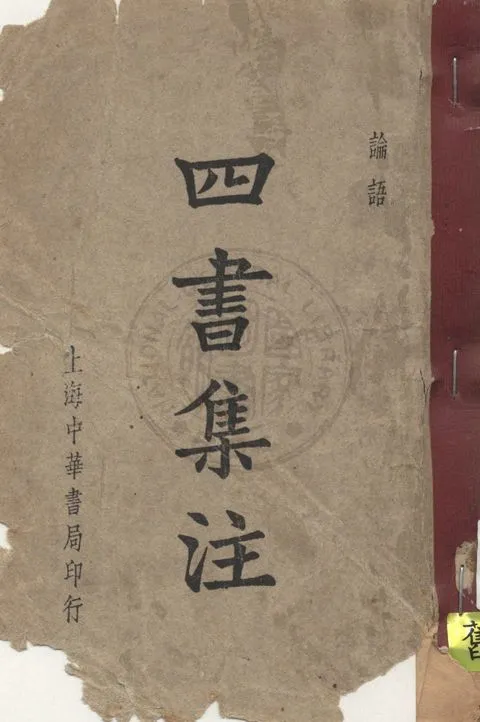 論語
四書集注
上海中華書局印行
舊